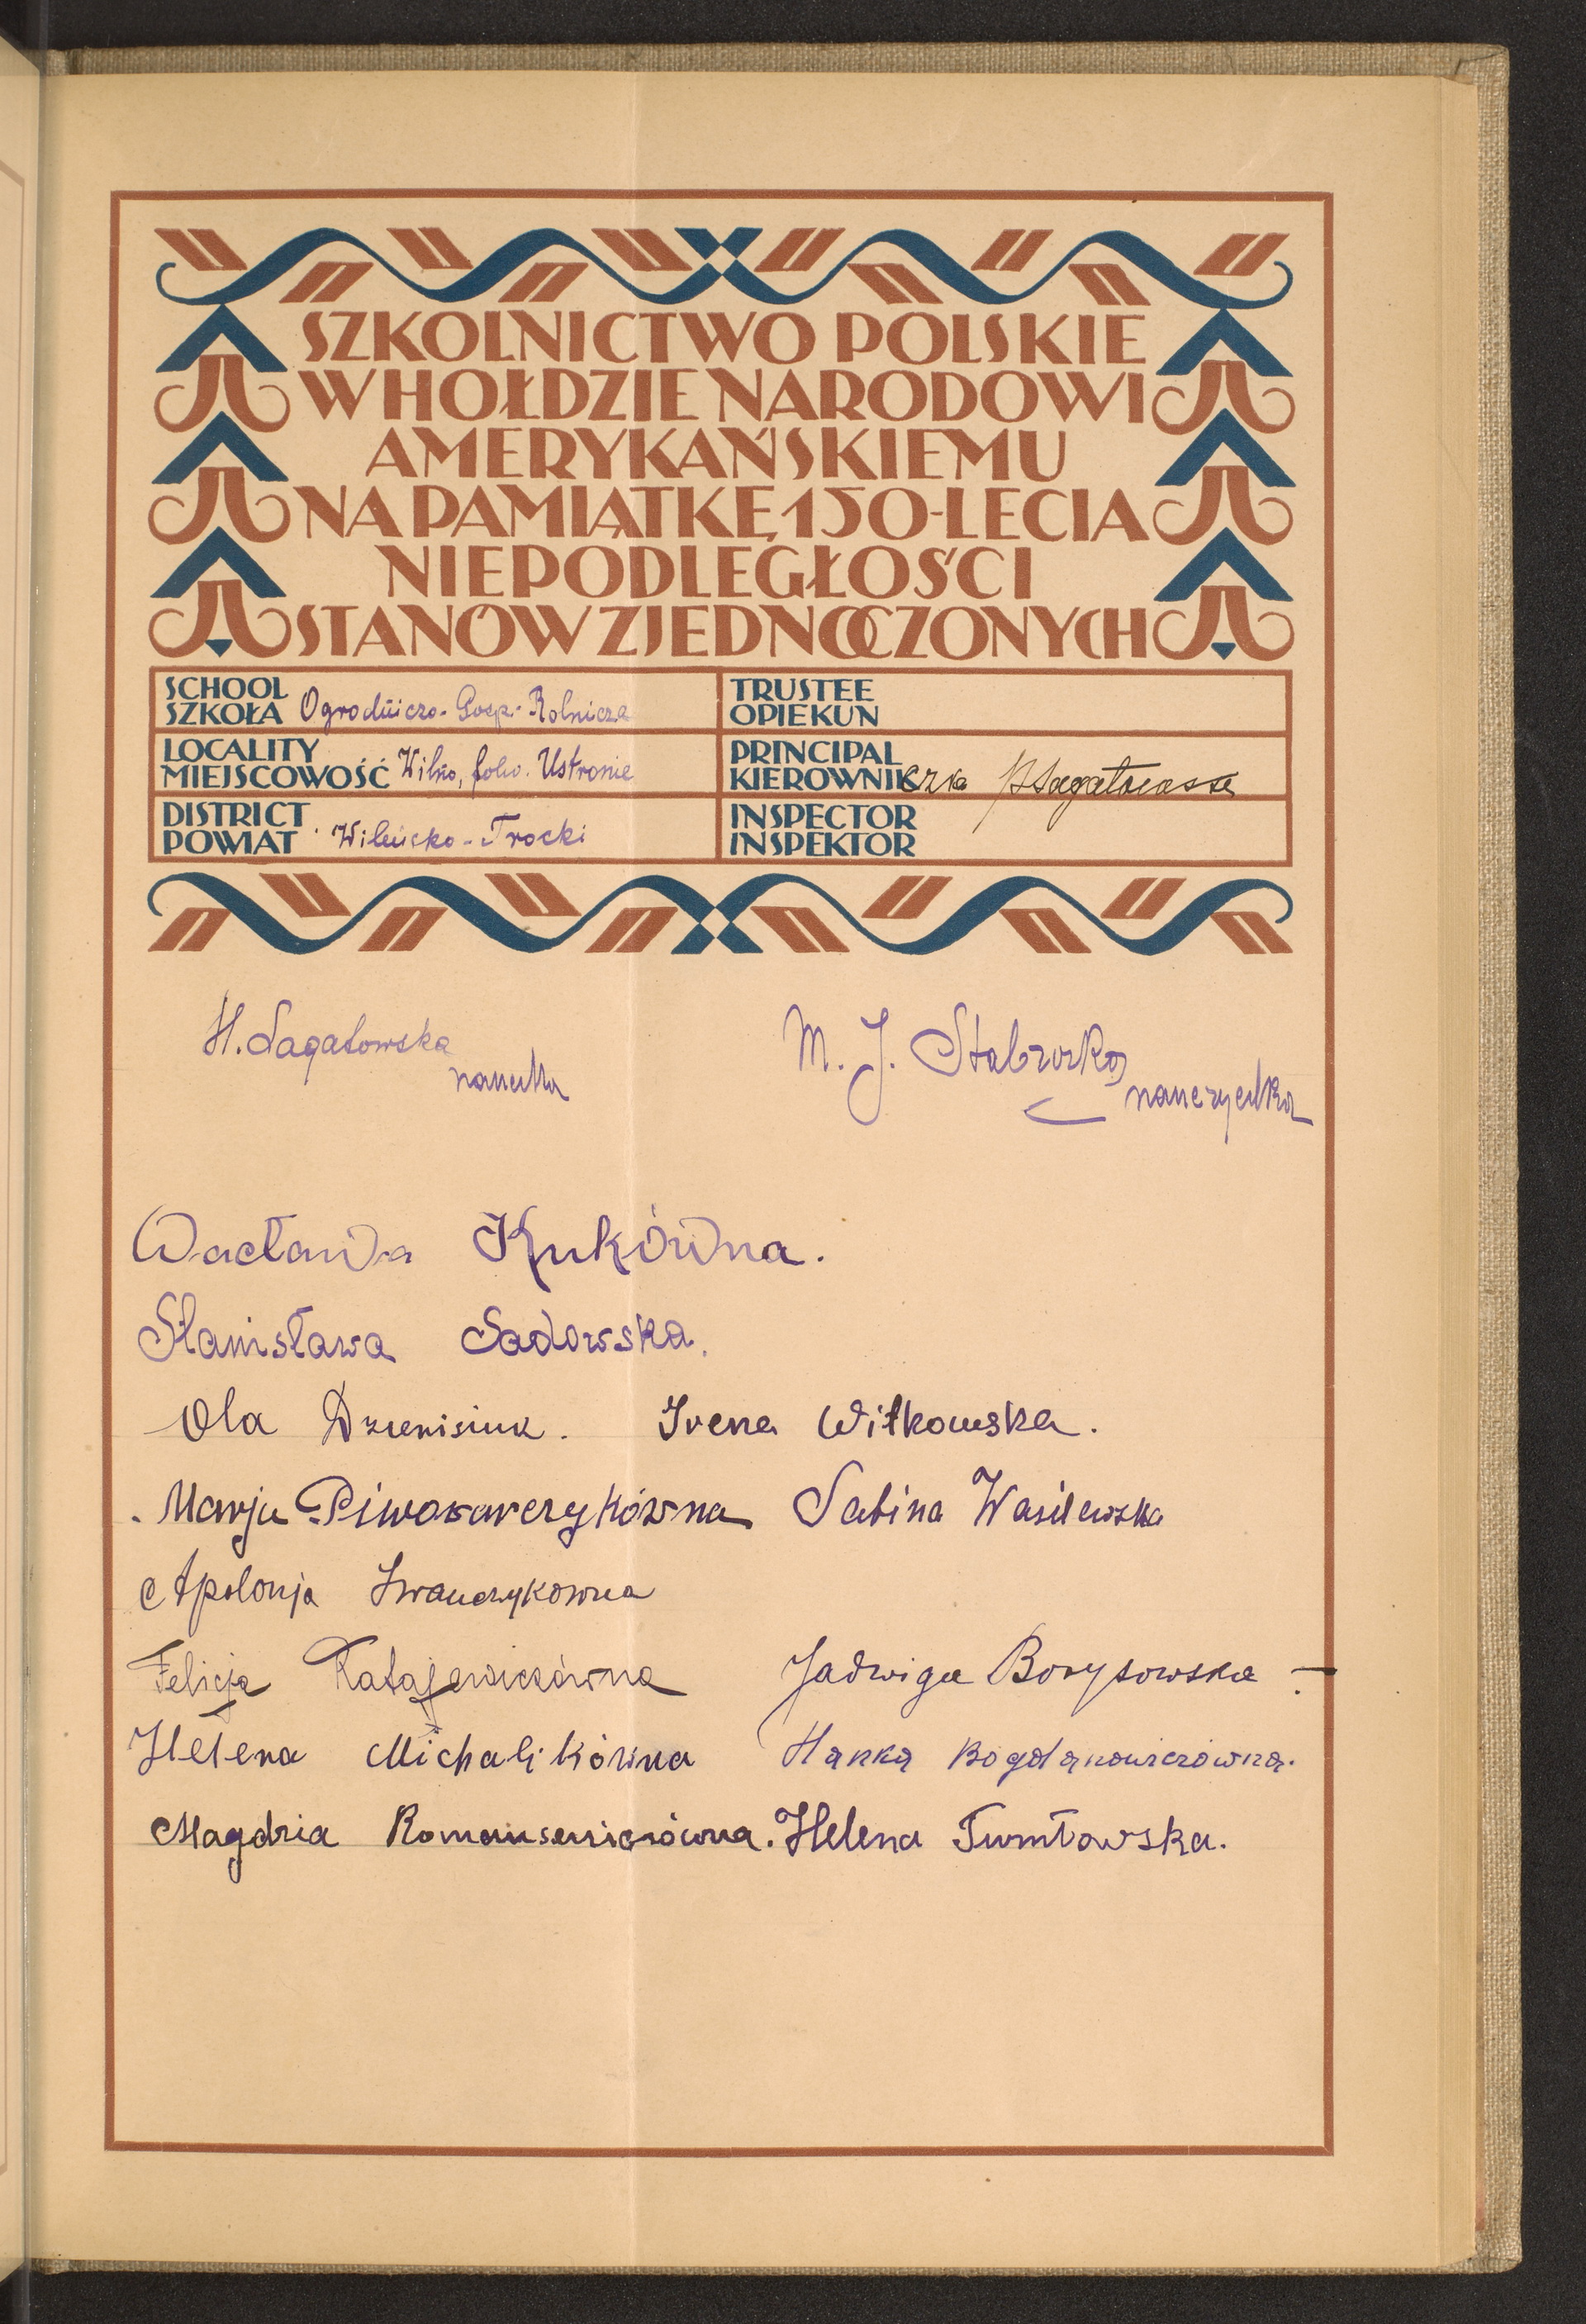 SZKOLNICTWO POLSKIE
W HOŁDZIE NARODOWI
AMERYKAŃSKIEMU
NA PAMIĄTKĘ 150-LECIA
NIEPODLEGŁOŚCI
STANÓW ZJEDNOCZONYCH
SCHOOL
SZKOŁA Ogrodniczo-Gosp.-Rolnicza
TRUSTEE
OPIEKUN
LOCALITY
MIEJSCOWOŚĆ Wilno, folw. Ustronie
PRINCIPAL
KIEROWNIKczka
DISTRICT
POWIAT Wileńsko-Trocki
INSPECTOR
INSPEKTOR
H. Sagatowska
M. J.
nauczycielka
Wacława Kukówna.
Stanisława Sadowska.
Ola Dzienisiuk. Irena Witkowska.
Marja Piwowarczykówna Sabina Wasilewska
Apolonja Iwanczykówna
Felicja Ratajewiczówna Jadwiga Borysowska
Helena Michalikówna Hanka Bogdanowiczówna.
Magdzia Helena Tumłowska.